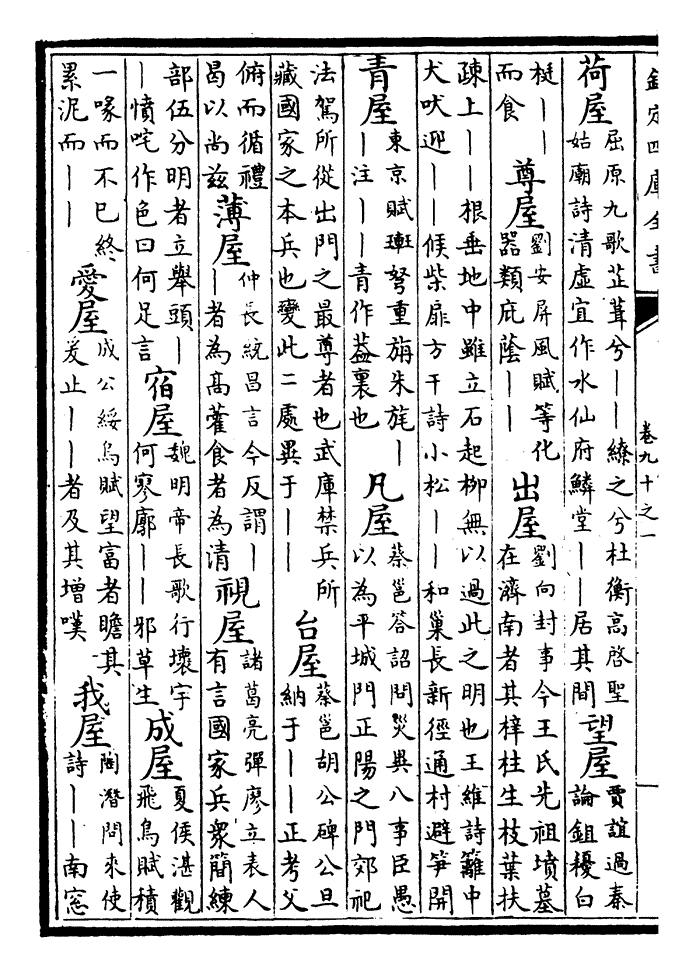 欽定四庫全書
卷九十之一
荷屋
屈原九歌芷葺兮——繚之兮杜衡高啓聖
姑廟詩清虛宜作水仙府鱗堂——居其間
望屋
賈誼過秦
論鉏耰白
梃——
而食
尊屋
劉安屏風賦等化
器類庇蔭——
出屋
劉向封事今王氏先祖墳墓
在濟南者其梓柱生枝葉扶
疎上——根垂地中雖立石起柳無以過此之明也王維詩籬中
犬吠迎——候柴扉方干詩小松——和巢長新徑通村避筍開
青屋
東京賦弩重旃朱旄—
—注——青作葢裏也
凡屋
蔡邕答詔問災異八事臣愚
以為平城門正陽之門郊祀
法駕所從出門之最尊者也武庫禁兵所
藏國家之本兵也變此二處異于——
台屋
蔡邕胡公碑公旦
納于——正考父
俯而循禮
曷以尚茲
薄屋
仲長統昌言今反謂—
—者為高藿食者為清
視屋
諸葛亮彈廖立表人
有言國家兵衆簡練
部伍分明者立舉頭—
—憤咤作色曰何足言
宿屋
魏明帝長歌行壞宇
何寥廓——邪草生
成屋
夏侯湛觀
飛鳥賦積
一喙而不已終
累泥而——
愛屋
成公綏烏賦望富者瞻其
爰止——者及其增嘆
我屋
陶潛問來使
詩——南窓